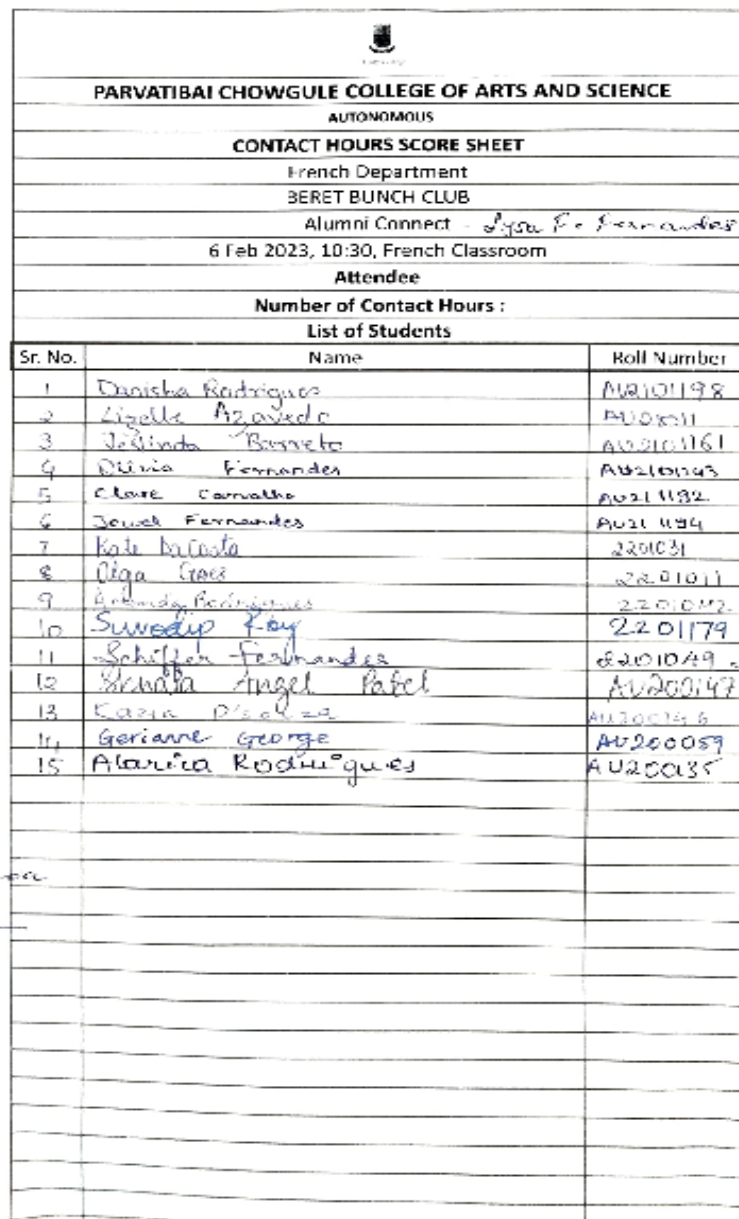 PARVATIBAI CHOWGULE COLLEGE OF ARTS AND SCIENCE
AUTONOMOUS
CONTACT HOURS SCORE SHEET
French Department
BERET BUNCH CLUB
Alumni Connect - Lysa F. Fernandes
6 Feb 2023, 10:30, French Classroom
Attendee
Number of Contact Hours :
List of Students
Sr. No. Name Roll Number
1 Danisha Rodrigues AU2101198
2 Lizelle Azavedo
3 Barreto AU2101161
4 Fernandes
5 Clare Carvalho AU211192
6 Jewel Fernandes AU211194
7 Kate DaCosta 2201031
8 Olga Goes 2201011
9 Rodrigues
10 Suvodip Roy 2201179
11 Schiffer Fernandes 2201049
12 Angel Patel AU200147
13 D'souza
14 Gerianne George AU200059
15 Alarica Rodrigues